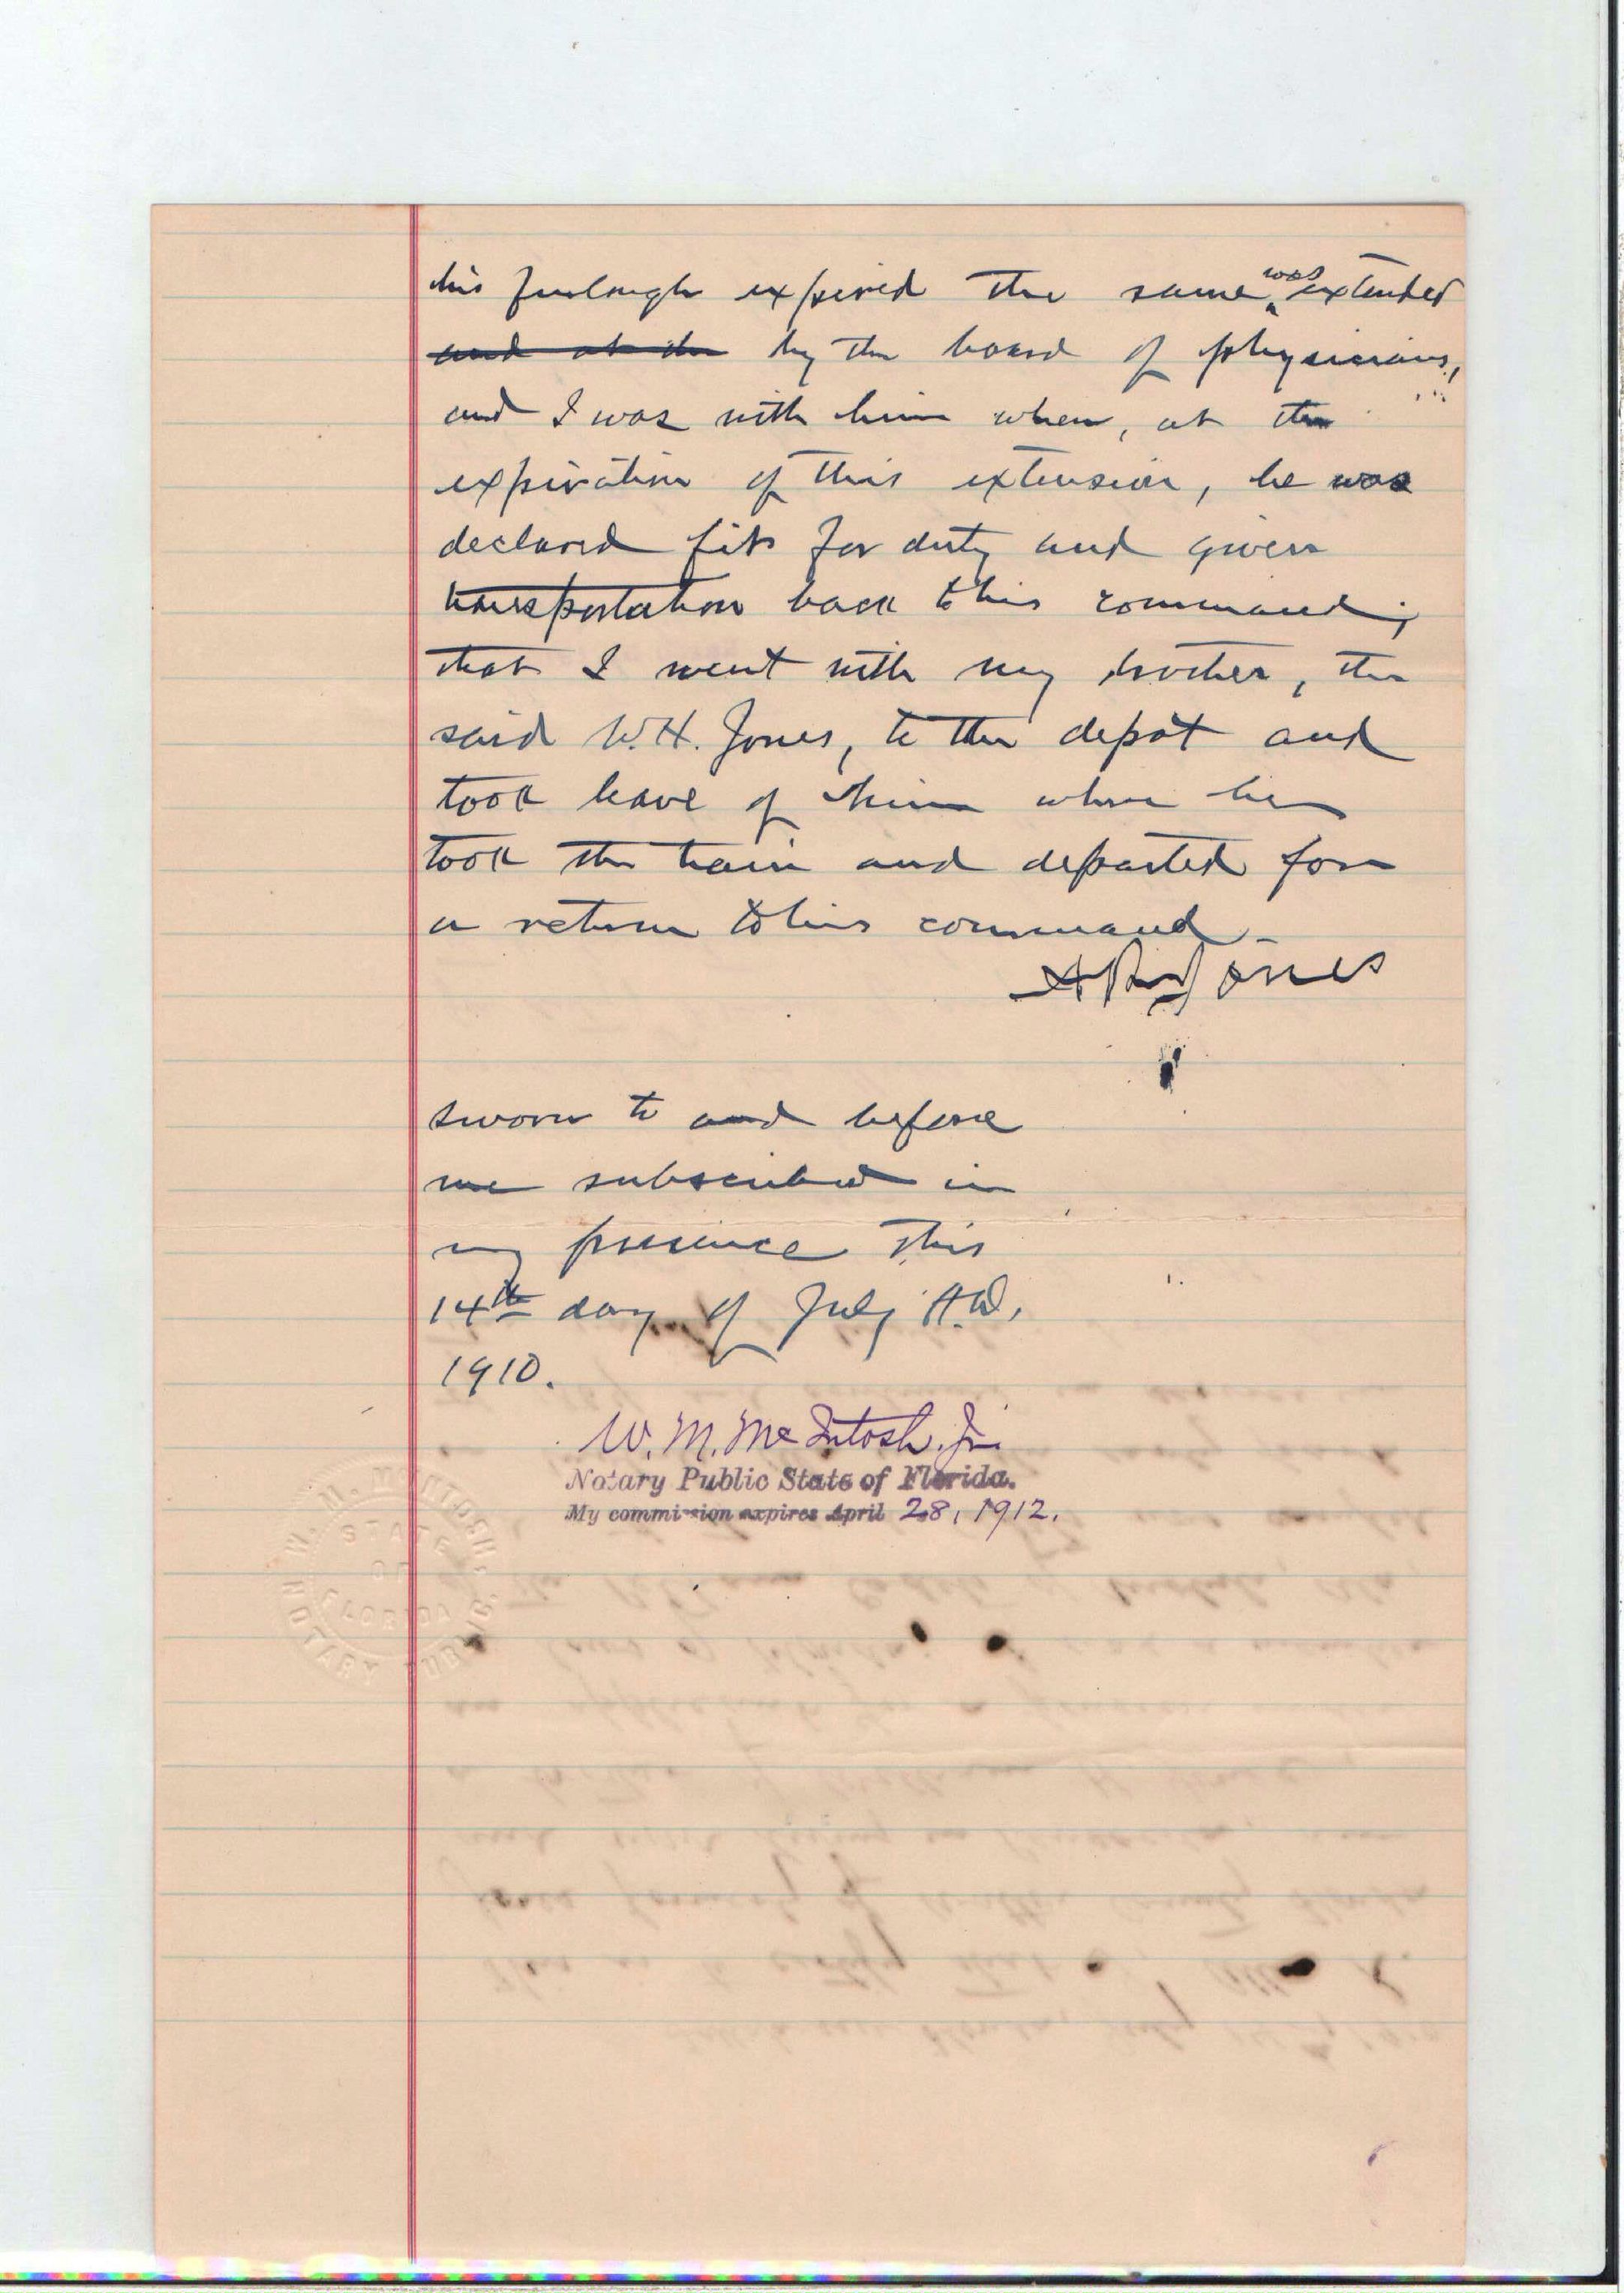 his furlough expired the same was extended
and at the by the board of physicians,
and I was with him when, at the
expiration of this extension, he was
declared fit for duty and given
transportation back to his command;
that I went with my brother, the
said W.H. Jones, to the depot and
took leave of him when he
took the train and departed for
a return to his command.
Jones
Sworn to and before
me subscribed in
my presence this
14th day of July A.D.
1910.
W. M. McIntosh, Jr.
Notary Public State of Florida.
My commission expires April 28, 1912.
W. M. McINTOSH, JR.
STATE
OF
FLORIDA
NOTARY PUBLIC.